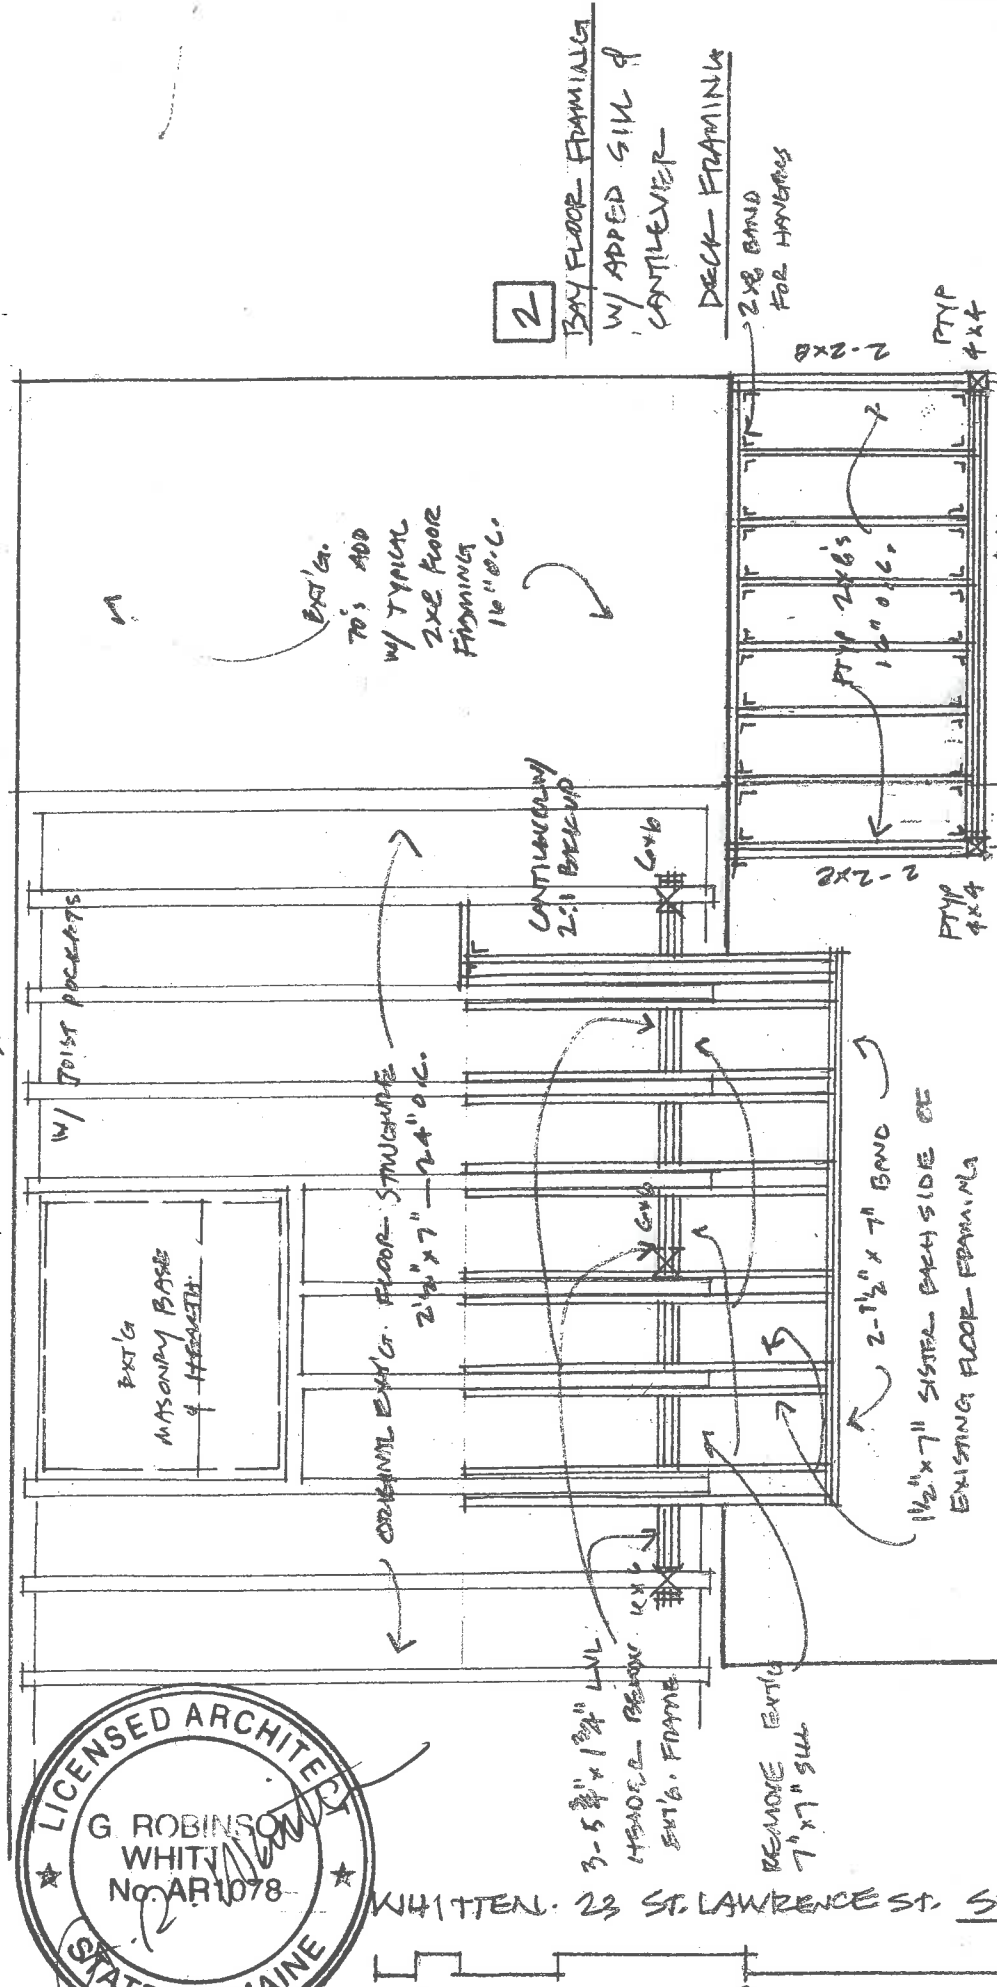 2
BAY FLOOR FRAMING
W/ ADDED SILL &
CANTILEVER
DECK FRAMING
2x8 BAND
FOR HANGERS
2-2x8
PTYP
4x4
EXT'G.
70's ADD
W/ TYPICAL
2x8 FLOOR
FRAMING
16" O.C.
PTYP 2x8's
16" O.C.
2-2x8
PTYP
4x4
W/ JOIST POCKETS
CANTILEVER W/
2:1 BACKUP
6x6
EXT'G
MASONRY BASE
& HEARTH
ORIGINAL EXT'G. FLOOR STRUCTURE
2½" x 7" - 24" O.C.
6x6
2-1½" x 7" BAND
1½" x 7" SISTER EACH SIDE OF
EXISTING FLOOR FRAMING
3-5¾" x 1¾" LVL
HEADER BELOW
EXT'G. FRAME
6x6
REMOVE EXT'G
7" x 7" SILL
LICENSED ARCHITECT
G. ROBINSON
WHITT
No. AR1078
STATE MAINE
WHITTEN. 23 ST. LAWRENCE ST.